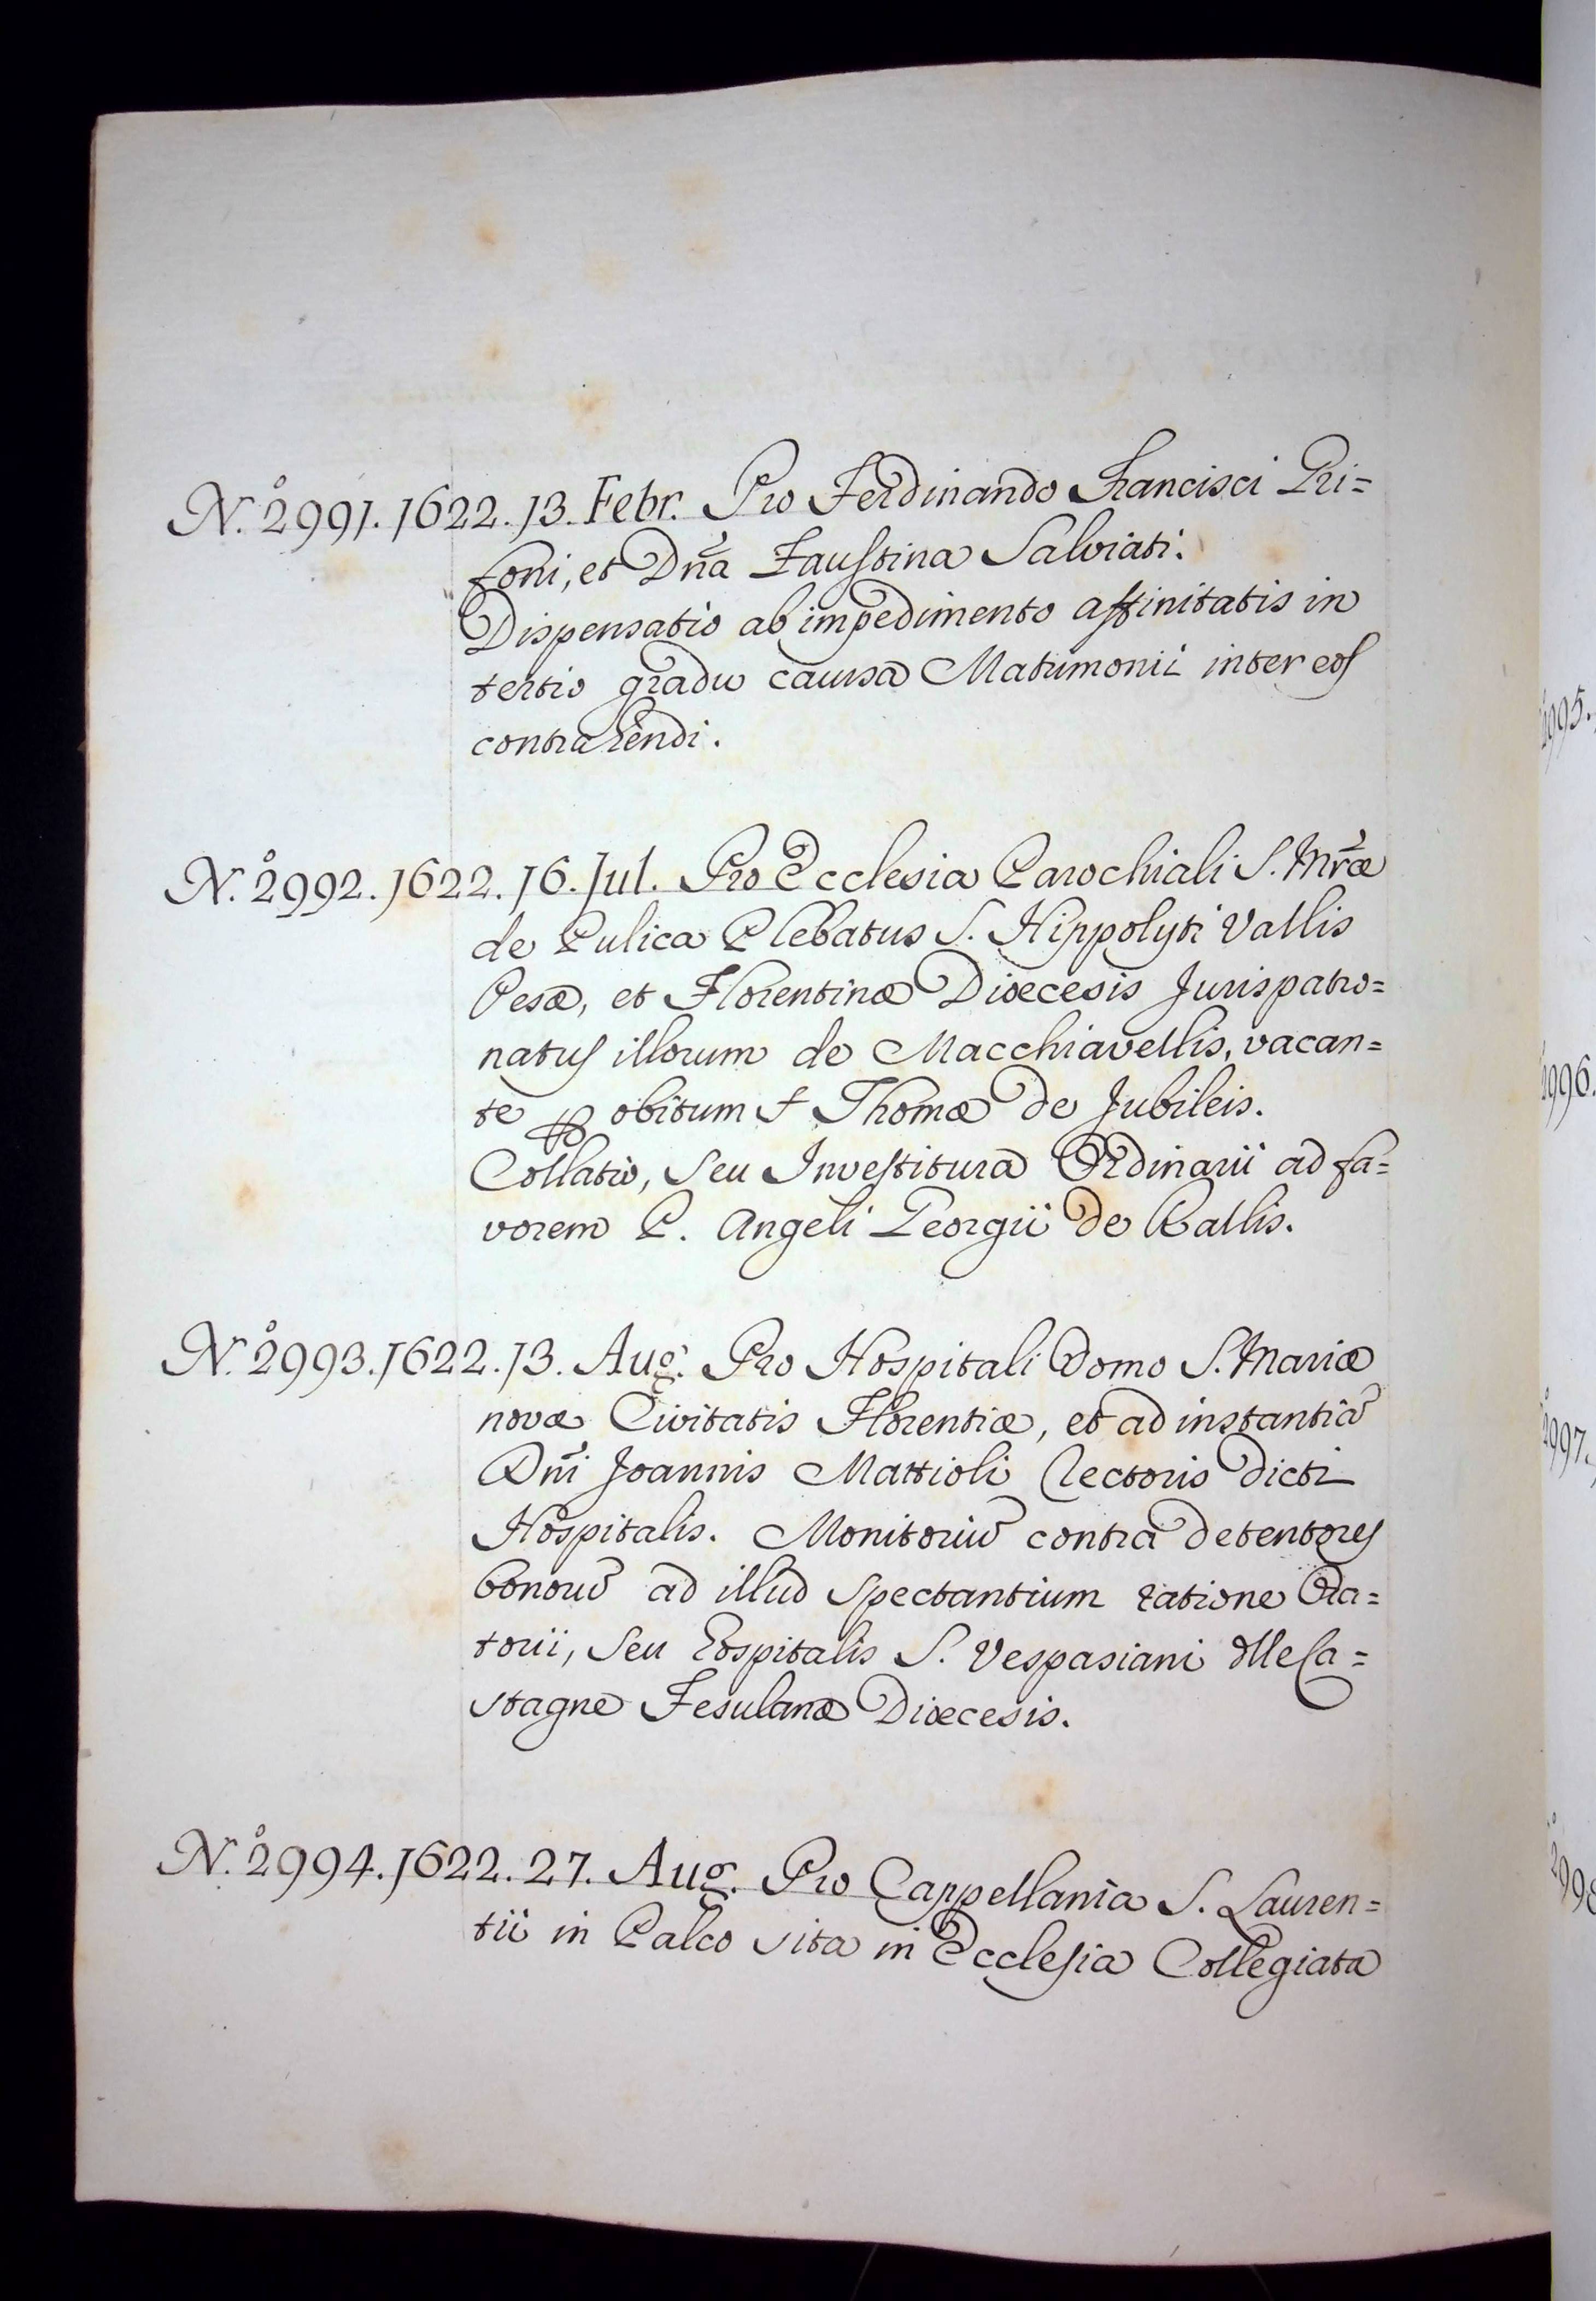 N.º 2991. 1622. 13. Febr. Pro Ferdinando Francisci Gri=
foni, et Dña Faustina Salviati.
Dispensatio ab impedimento affinitatis in
tertio gradu causa Matrimonii inter eos
contrahendi.
N.º 2992. 1622. 16. Jul. Pro Ecclesia Parochiali S. Mræ
de Pulica Plebatus S. Hippolyti Vallis
Pesæ, et Florentinæ Diœcesis Jurispatro=
natus illorum de Macchiavellis, vacan=
te obitum Thomæ de Jubileis.
Collatio, seu Investitura Ordinarii ad fa=
vorem P. Angeli Georgii de Rallis.
N.º 2993. 1622. 13. Aug. Pro Hospitali Domo S. Mariæ
novæ Civitatis Florentiæ, et ad instantiã
Dñi Joannis Mattioli Rectoris dicti
Hospitalis. Monitoriũ contra detentores
bonorũ ad illud spectantium ratione Ora=
torii, seu Hospitalis S. Vespasiani
stagne Fesulanæ Diœcesis.
N.º 2994. 1622. 27. Aug. Pro Cappellania S. Lauren=
tii in Palco sita in Ecclesia Collegiata
2995.
2996.
2997.